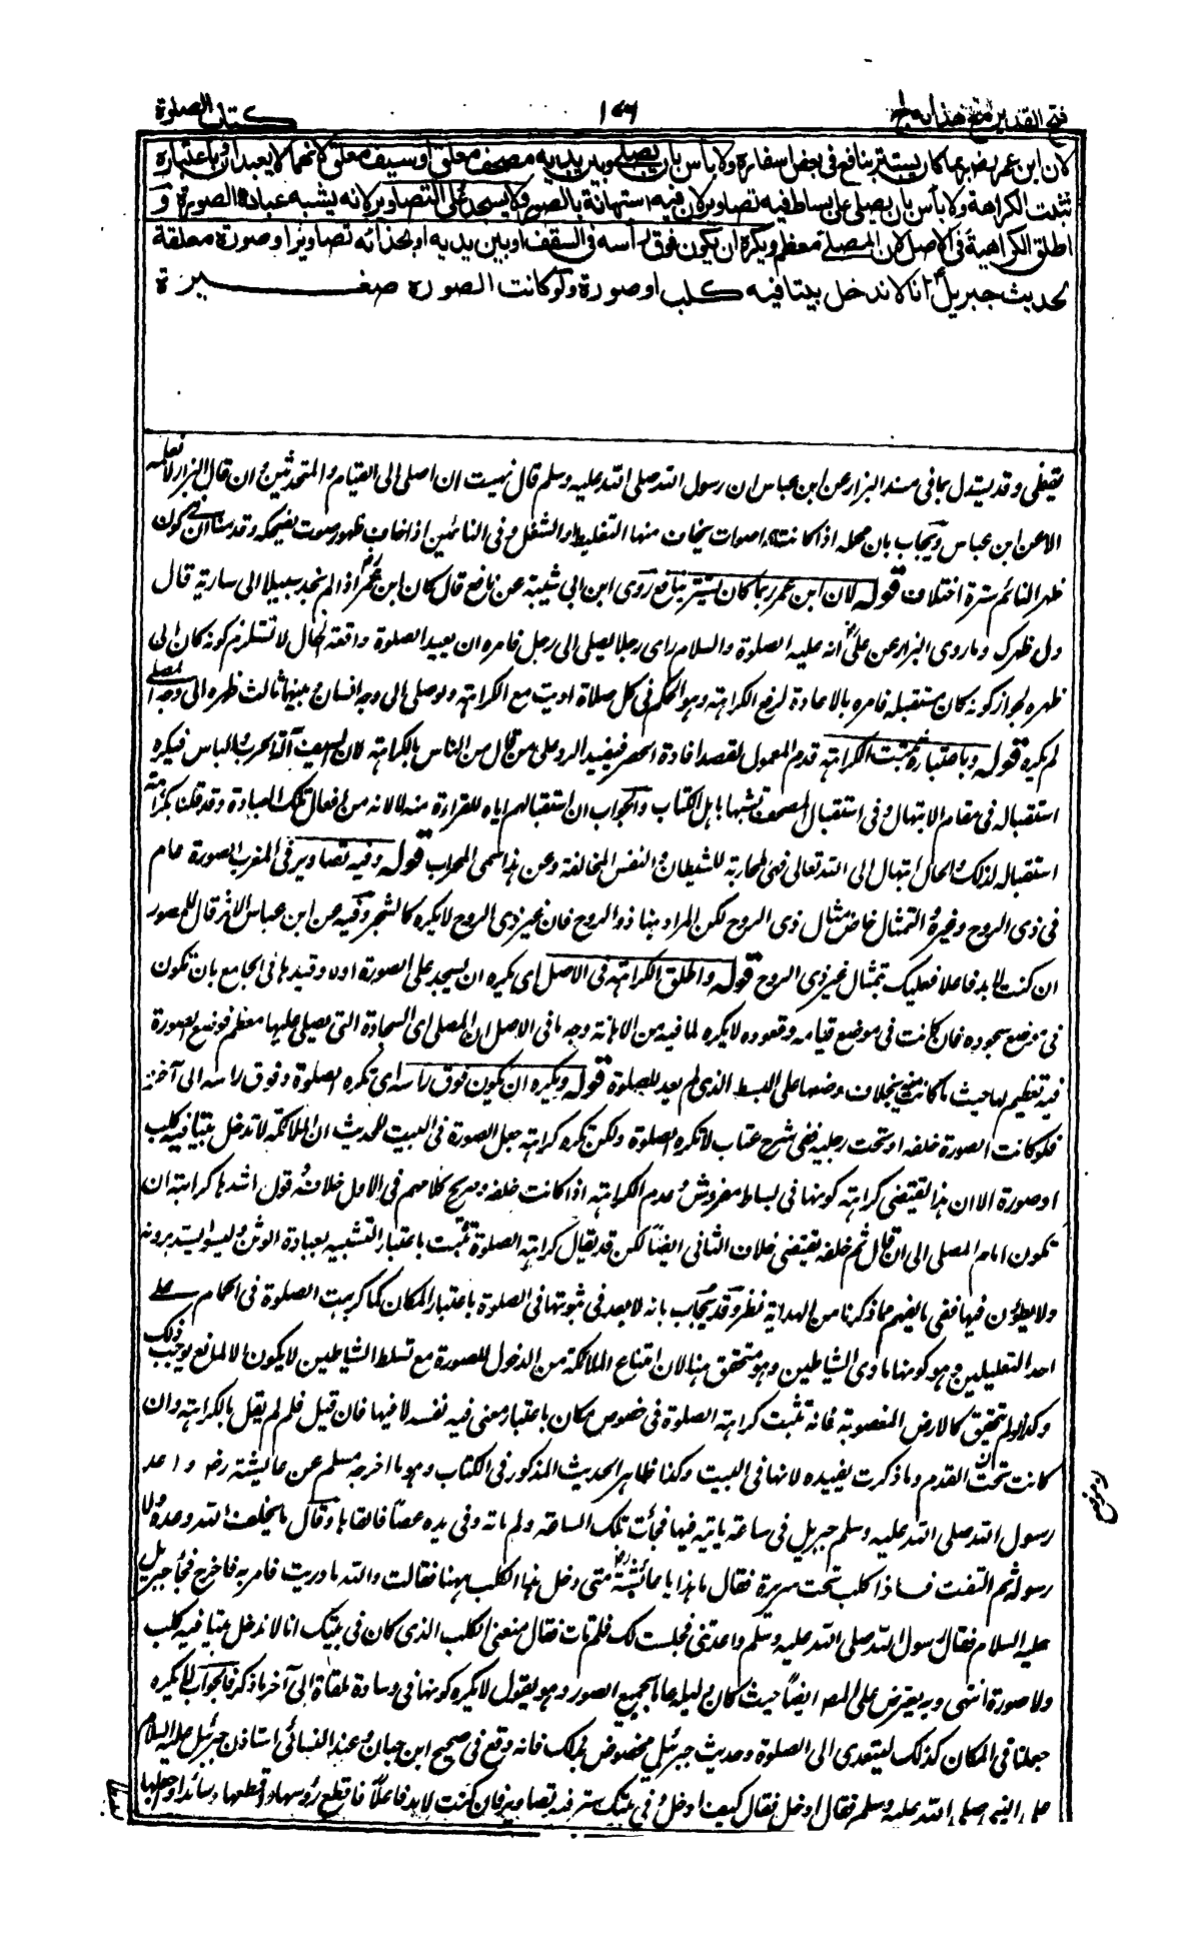 فتح القدير مع هدايه ج
١٧٦
كتاب الصلوة
لان ابن عمر ربما كان يستتر بنافع فى بعض اسفاره ولا بأس بان يصلى وبين يديه مصحف معلق او سيف معلق لانهما لا يعبدان وباعتباره
تثبت الكراهة ولا بأس بان يصلى على بساط فيه تصاوير لان فيه استهانة بالصور ولا يسجد على التصاوير لانه يشبه عبادة الصورة و
اطلق الكراهية فى الاصل لان المصلى معظم ويكره ان يكون فوق رأسه فى السقف او بين يديه او بحذائه تصاوير او صورة معلقة
لحديث جبريل انا لا ندخل بيتا فيه كلب او صورة ولو كانت الصورة صغيرة
يقضى وقد يستدل بما فى مسند البزار عن ابن عباس ان رسول الله صلى الله عليه وسلم قال نهيت ان اصلى الى النيام والمتحدثين وان قال البزار لا نعلمه
الا عن ابن عباس ويجاب بان محله اذا كانت اصوات يخاف منها التغليط والشغل وفى النائمين اذا خاف ظهور صوت يضحكه وقدمنا ان فى كون
ظهر النائم سترة اختلاف قوله لان ابن عمر ربما كان يستتر بنافع روى ابن ابى شيبة عن نافع قال كان ابن عمر رض اذا لم يجد سبيلا الى سارية قال
ول ظهرك وما روى البزار عن على انه عليه الصلوة والسلام راى رجلا يصلى الى رجل فامره ان يعيد الصلوة واقعة حال لا تستلزم كونه كان الى
ظهره لجواز كونه كان مستقبله فامره بالاعادة لرفع الكراهة وهو الحكم فى كل صلاة اديت مع الكراهة ولو صلى الى وجه انسان وبينهما ثالث ظهره الى وجه المصلى
لم يكره قوله وباعتباره تثبت الكراهة قدم المعمول لقصد افادة الحصر فيفيد الرد على من قال من الناس بالكراهة لان السيف آلة الحرب والباس فيكره
استقباله فى مقام الابتهال وفى استقبال المصحف تشبها باهل الكتاب والجواب ان استقبالهم اياه للقراءة منه لا لانه من افعال تلك العبادة وقد قلنا بكراهة
استقباله لذلك والحال ابتهال الى الله تعالى فهى لمحاربة للشيطان والنفس المخالفة وعن هذا سمى المحراب قوله وفيه تصاوير فى المغرب الصورة عام
فى ذى الروح وغيره التمثال خاص بمثال ذى الروح لكن المراد هنا ذو الروح فان غير ذى الروح لا يكره كالشجر وفيه عن ابن عباس الاثر قال للمصور
ان كنت لا بد فاعلا فعليك بتمثال غير ذى الروح قوله واطلق الكراهة فى الاصل اى يكره ان يسجد على الصورة اولا وقيدها فى الجامع بان تكون
فى موضع سجوده فان كانت فى موضع قيامه وقعوده لا يكره لما فيه من الاهانة وجه ما فى الاصل ان المصلى اى السجادة التى يصلى عليها معظم فوضع الصورة
فيه تعظيم لها حيث ما كانت منه بخلاف وضعها على البسط الذى لم يعد للصلوة قوله ويكره ان يكون فوق راسه اى تكره الصلوة وفوق راسه الى آخره
فلو كانت الصورة خلفه او تحت رجليه ففى شرح عتاب لا تكره الصلوة ولكن تكره كراهة جعل الصورة فى البيت للحديث ان الملائكة لا تدخل بيتا فيه كلب
او صورة الا ان هذا يقتضى كراهة كونها فى بساط مفروش وعدم الكراهة اذا كانت خلفه وصريح كلامهم فى الاول خلافه وقول اشدها كراهة ان
تكون امام المصلى الى ان قال ثم خلفه يقتضى خلاف الثانى ايضا لكن قد يقال كراهة الصلوة تثبت باعتبار التشبه بعبادة الوثن وليسوا يستدبرونه
ولا يطؤن فيها ففى ما يفهم مما ذكرنا من الهداية نظر وقد يجاب بانه لا بعد فى ثبوتها فى الصلوة باعتبار المكان كما كرهت الصلوة فى الحمام على
احد التعليلين وهو كونها ماوى الشياطين وهو متحقق هنا لان امتناع الملائكة من الدخول للصورة مع تسلط الشياطين لا يكون الا لمانع يوجب ذلك
وكذا لو لم تحقق كالارض المغصوبة فانه تثبت كراهة الصلوة فى خصوص مكان باعتبار معنى فيه نفسه لا فيها فان قيل فلم لم يقل بالكراهة وان
كانت تحت القدم وما ذكرت يفيده لانها فى البيت وكذا ظاهر الحديث المذكور فى الكتاب وهو ما اخرجه مسلم عن عائشة رض واعد
رسول الله صلى الله عليه وسلم جبريل فى ساعة ياتيه فيها فجاءت تلك الساعة ولم ياته وفى يده عصا فالقاها وقال ما يخلف الله وعده ولا
رسوله ثم التفت فاذا كلب تحت سريره فقال ما هذا يا عائشة متى دخل هذا الكلب ههنا فقالت والله ما دريت فامر به فاخرج فجاء جبريل
عليه السلام فقال رسول الله صلى الله عليه وسلم واعدتنى فجلست لك فلم تات فقال منعنى الكلب الذى كان فى بيتك انا لا ندخل بيتا فيه كلب
ولا صورة انتهى وبه يعترض على المص ايضا حيث كان دليله عاما لجميع الصور وهو يقول لا يكره كونها فى وسادة ملقاة الى آخر ما ذكر فالجواب لا يكره
جعلنا فى المكان كذلك ليتعدى الى الصلوة وحديث جبرئيل مخصوص بذلك فانه وقع فى صحيح ابن حبان وعند النسائى استاذن جبرئيل عليه السلام
على النبى صلى الله عليه وسلم فقال ادخل فقال كيف ادخل وفى بيتك ستر فيه تصاوير فان كنت لا بد فاعلا فاقطع رؤسها او قطعها وسائد او اجعلها